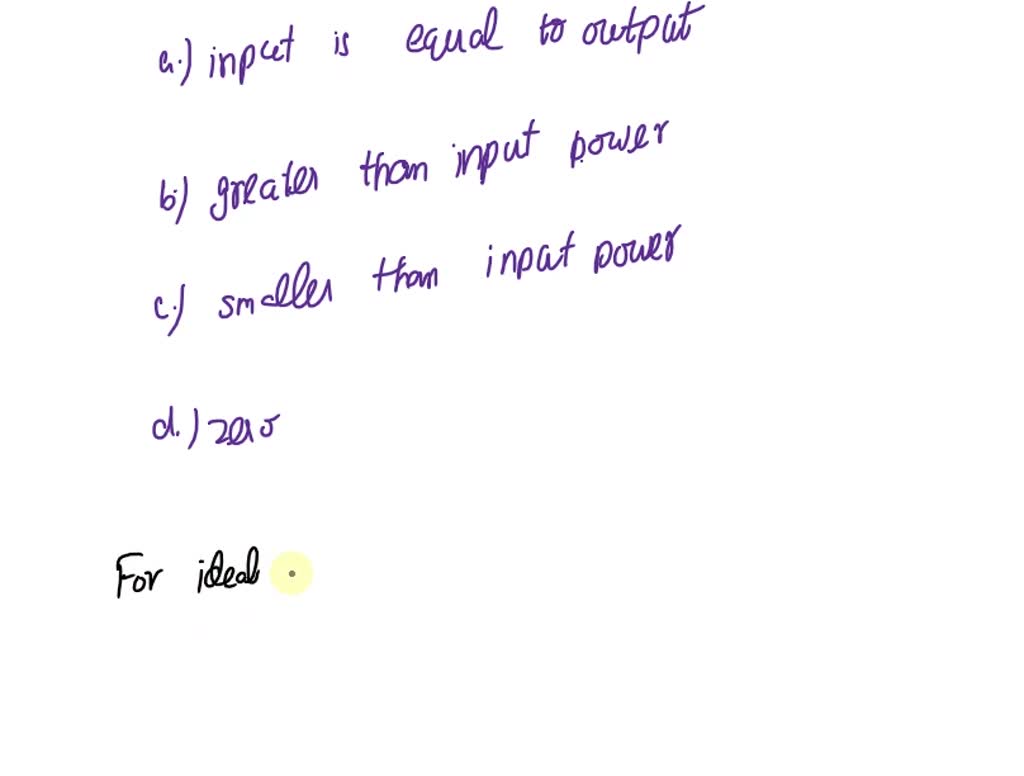 a.) input is equal to output
b.) greater than input power
c.) smaller than input power
d.) zero
For ideal